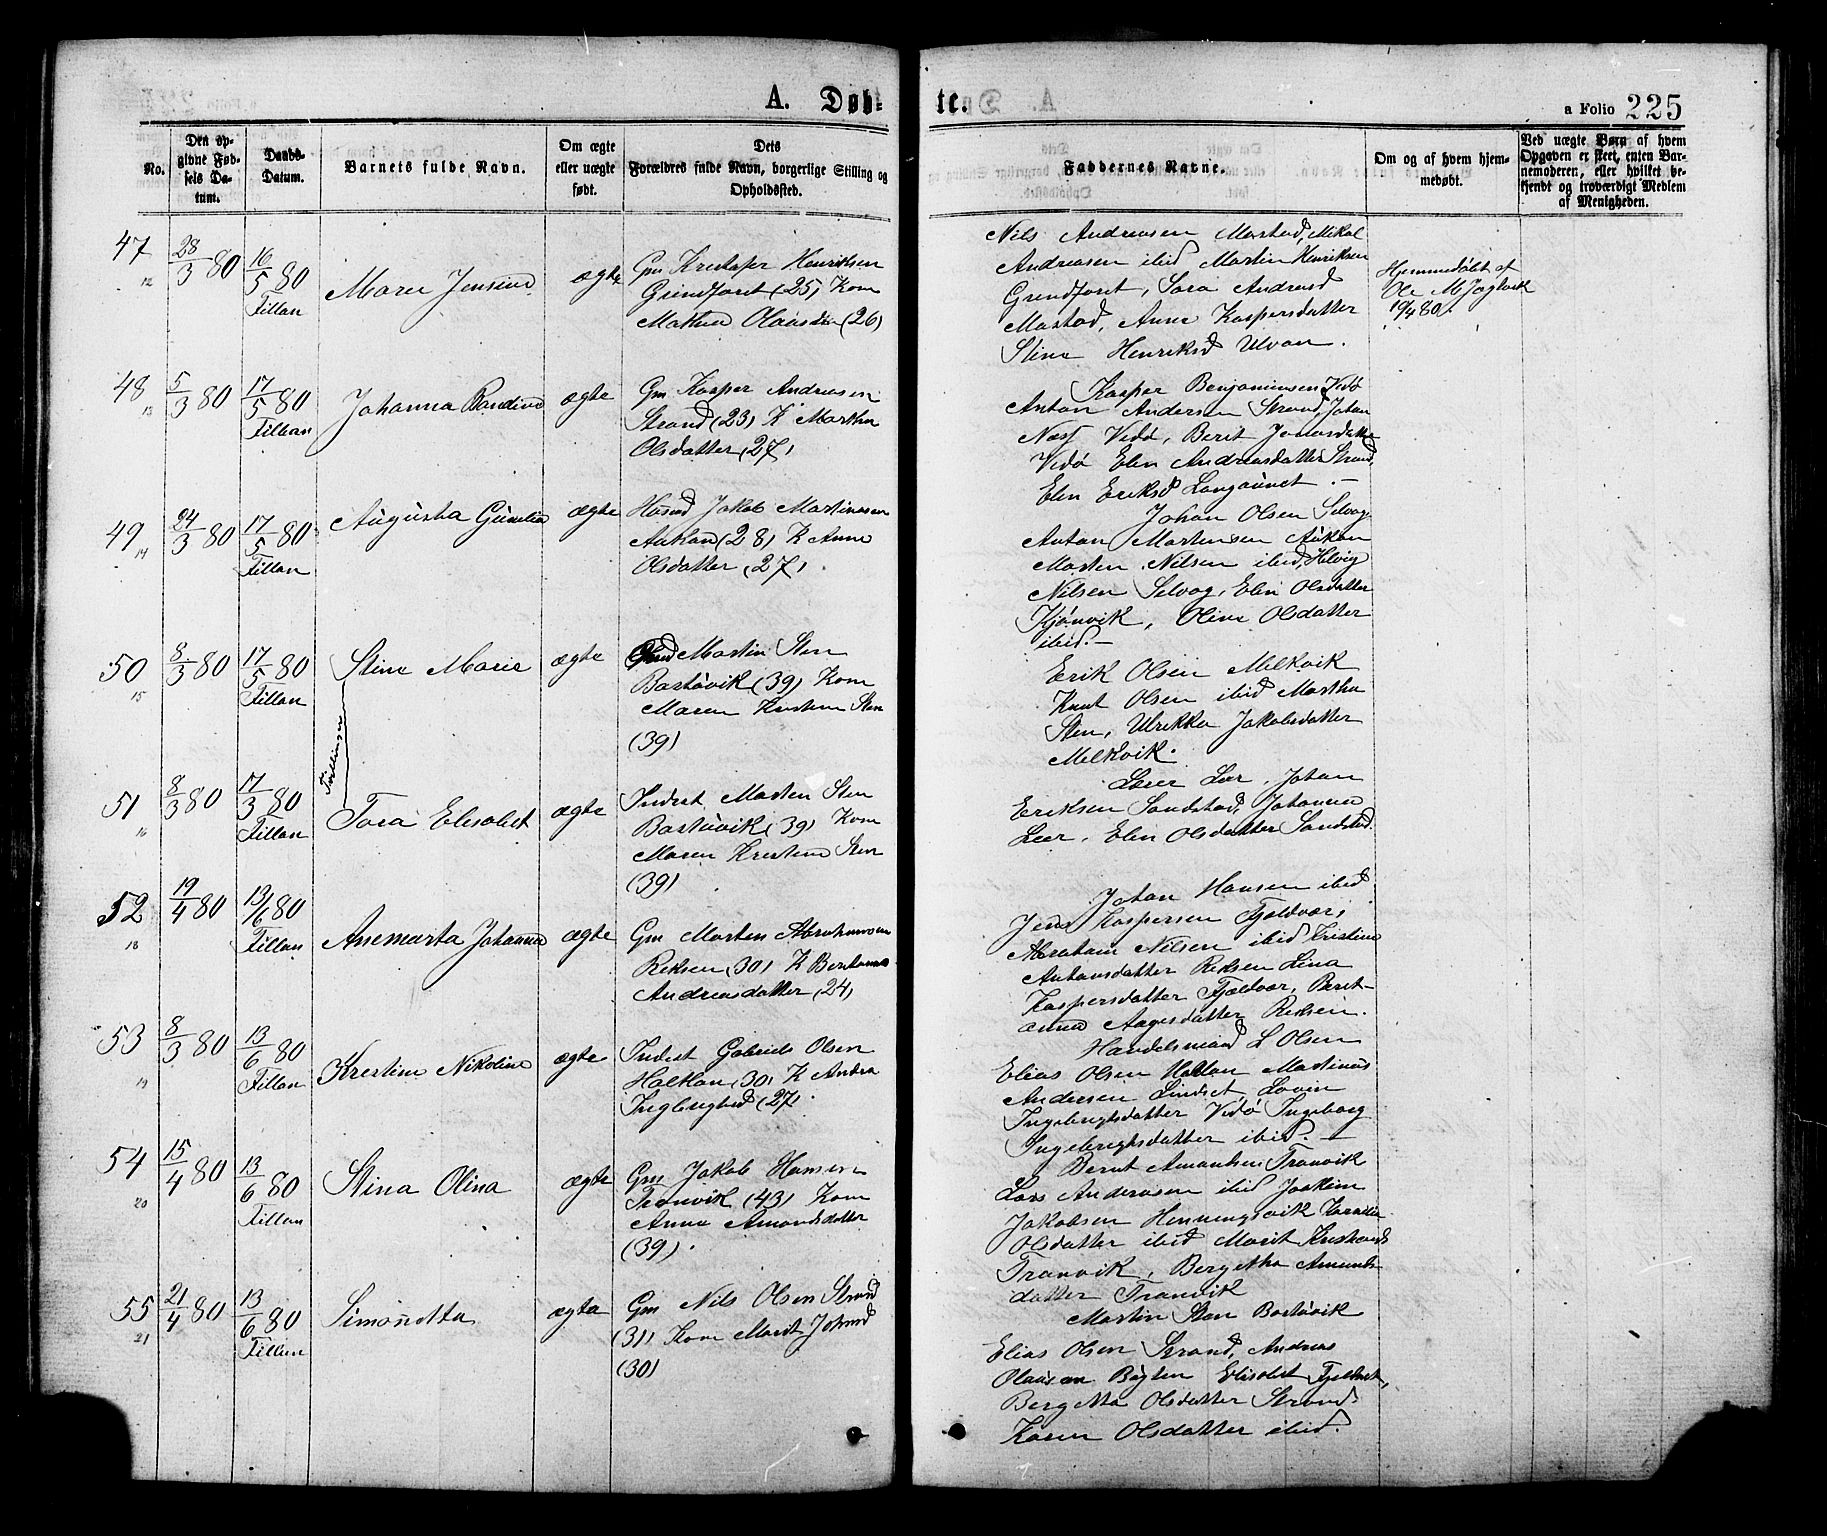 A. Døb-
te.
a Folio 225
No.
Den op-
givne Fød-
sels Da-
tum.
Daabs-
Datum.
Barnets fulde Navn.
Om ægte
eller uægte
født.
Dets
Forældres fulde Navn, borgerlige Stilling og
Opholdssted.
Faddernes Navne.
Om og af hvem hjem-
medøbt.
Ved uægte Børn af hvem
Opgaven er skeet, enten Bar-
nemoderen, eller hvilket be-
kjendt og troværdigt Medlem
af Menigheden.
47
12
28/3 80
16/5 80
Fillan
Maren Jensine
ægte
Gm Krestofer Henriksen
Grindforet (25) Kone
Mathea Olausdtr (26)
Nils Andreasen Mastad, Mikal
Andreasen ibid Martin Henriksen
Grindforet, Sara Andreasd
Mastad, Anne Kaspersdatter
Stine Henriksd Ulvan.
Hjemmedøbt af
Ole M
19/4 80.
48
13
5/3 80
17/5 80
Fillan
Johanna Bandine
ægte
Gm Kasper Andreasen
Strand (23) K Martha
Olsdatter (27)
Kasper Benjaminsen Vedø
Anton Andersen Strand, Johan
Næss Vedø, Berit Jonasdatter
Vedø Elen Andreasdatter Strand,
Elen Eriksd Langaunet.
49
14
24/3 80
17/5 80
Fillan
Augusta Gunelia
ægte
Husmd Jakob Martinusen
Aukan (28) K Anne
Olsdatter (27)
Johan Olsen Selvag
Anton Martensen Aukan
Morten Nilsen ibid, Helvig
Nilsen Selvag, Elen Olsdatter
Kjønvik, Oline Olsdatter
ibid.
50
15
8/3 80
17/5 80
Fillan
Stine Marie
ægte
Martin Sten
Bastuvik (39) Kone
Maren Kristine Sten
(39)
Erik Olsen Melkvik
Knut Olsen ibid Martha
Sten, Ulrikka Jakobsdatter
Melkvik.
Tvillinger
51
16
8/3 80
17/3 80
Fillan
Tora Elisabet
ægte
Inderst Morten Sten
Bastuvik (39) Kone
Maren Krestine Sten
(39)
Leer, Johan
Eriksen Sandstad, Johanna
Leer, Elen Olsdatter Sandstad.
52
18
19/4 80
13/6 80
Fillan
Anemarta Johanna
ægte
Gm Morten Abrahamsen
Reksen (30) K Beritanna
Andreasdatter (24)
Johan Hansen ibid
Jens Kaspersen Fjeldvær,
Abraham Nilsen ibid Kristine
Antonsdatter Reksen Lina
Kaspersdatter Fjeldvær, Berit-
anna Aagesdatter Reksen.
53
19
8/3 80
13/6 80
Fillan
Krestine Nikoline
ægte
Inderst Gabriels Olsen
Hatlan (30) K Andrea
Ingebrigtsd (27).
Handelsmand L Olsen
Elias Olsen Hatlan Martinus
Andersen Lindset, Lovin
Ingebrigtsdatter Vedø Ingeborg
Ingebrigtsdatter ibid.
54
20
15/4 80
13/6 80
Fillan
Stina Olina
ægte
Gm Jakob Hansen
Tranvik (43) Kone
Anna Amondsdatter
(39).
Bernt Amandsen Tranvik
Lars Andersen ibid Joakim
Jakobsen Henningsvik Karolin
Olsdatter ibid Marit Kristensd
Tranvik, Bergetha Amunds-
datter Tranvik
55
21
21/4 80
13/6 80
Fillan
Simonetta
ægte
Gm Nils Olsen Strand
(31) Kone Marit Johansd
(30)
Martin Sten Bastuvik
Elias Olsen Strand, Andreas
Olausen Elisabet
Bergetta Olsdatter Strand
Karen Olsdatter ibid.